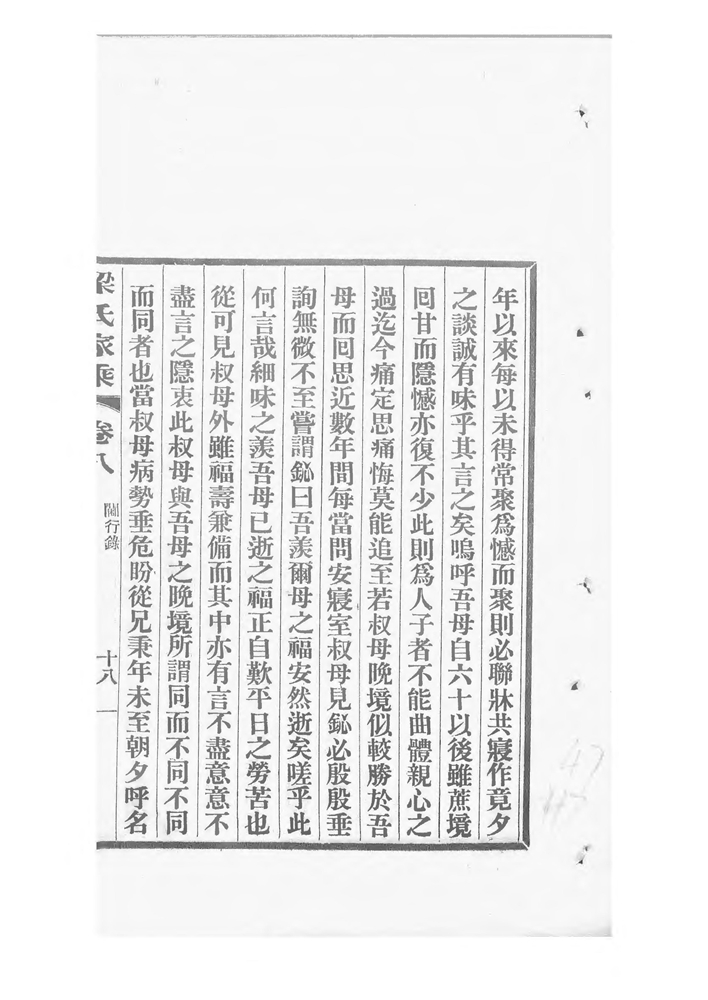 年以來每以未得常聚爲憾而聚則必聯牀共寢作竟夕
之談誠有味乎其言之矣嗚呼吾母自六十以後雖蔗境
囘甘而隱憾亦復不少此則爲人子者不能曲體親心之
過迄今痛定思痛悔莫能追至若叔母晚境似較勝於吾
母而囘思近數年間每當問安寢室叔母見鉍必殷殷垂
詢無微不至嘗謂鉍曰吾羨爾母之福安然逝矣嗟乎此
何言哉細味之羨吾母已逝之福正自歎平日之勞苦也
從可見叔母外雖福壽兼備而其中亦有言不盡意意不
盡言之隱衷此叔母與吾母之晚境所謂同而不同不同
而同者也當叔母病勢垂危盼從兄秉年未至朝夕呼名
梁氏家乘 卷八 閫行錄 十八
47